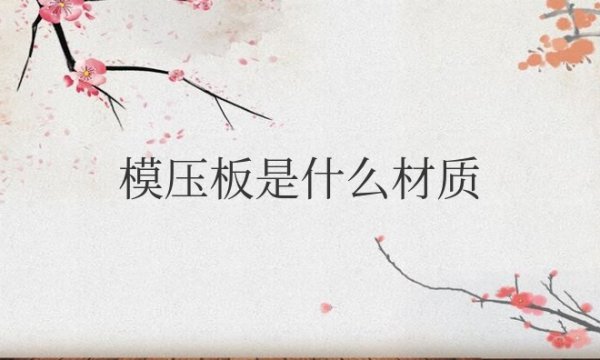 模压板是什么材质